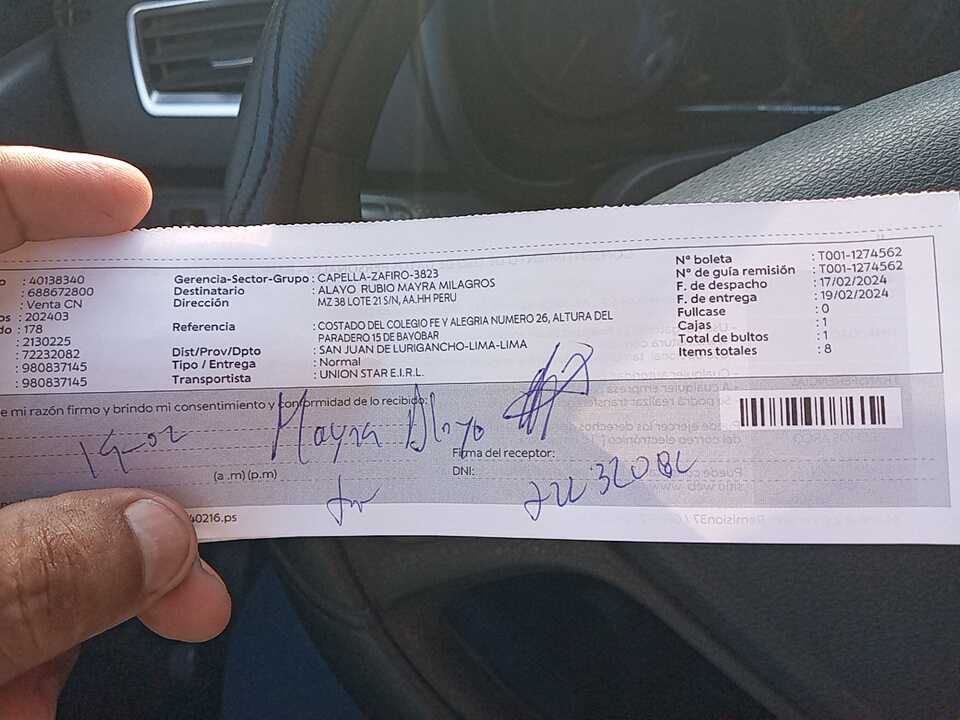 : 40138340
: 688672800
: Venta CN
: 202403
: 178
: 2130225
: 72232082
: 980837145
: 980837145
Gerencia-Sector-Grupo : CAPELLA-ZAFIRO-3823
Destinatario : ALAYO RUBIO MAYRA MILAGROS
Dirección MZ 38 LOTE 21 S/N, AA.HH PERU
Referencia : COSTADO DEL COLEGIO FE Y ALEGRIA NUMERO 26, ALTURA DEL
PARADERO 15 DE BAYOBAR
Dist/Prov/Dpto : SAN JUAN DE LURIGANCHO-LIMA-LIMA
Tipo / Entrega : Normal
Transportista : UNION STAR E.I.R.L.
N° boleta : T001-1274562
N° de guía remisión : T001-1274562
F. de despacho : 17/02/2024
F. de entrega : 19/02/2024
Fullcase : 0
Cajas : 1
Total de bultos : 1
Items totales : 8
e mi razón firmo y brindo mi consentimiento y conformidad de lo recibido:
19-02
Mayra Alayo
(a .m) (p.m)
Firma del receptor:
DNI:
40216.ps